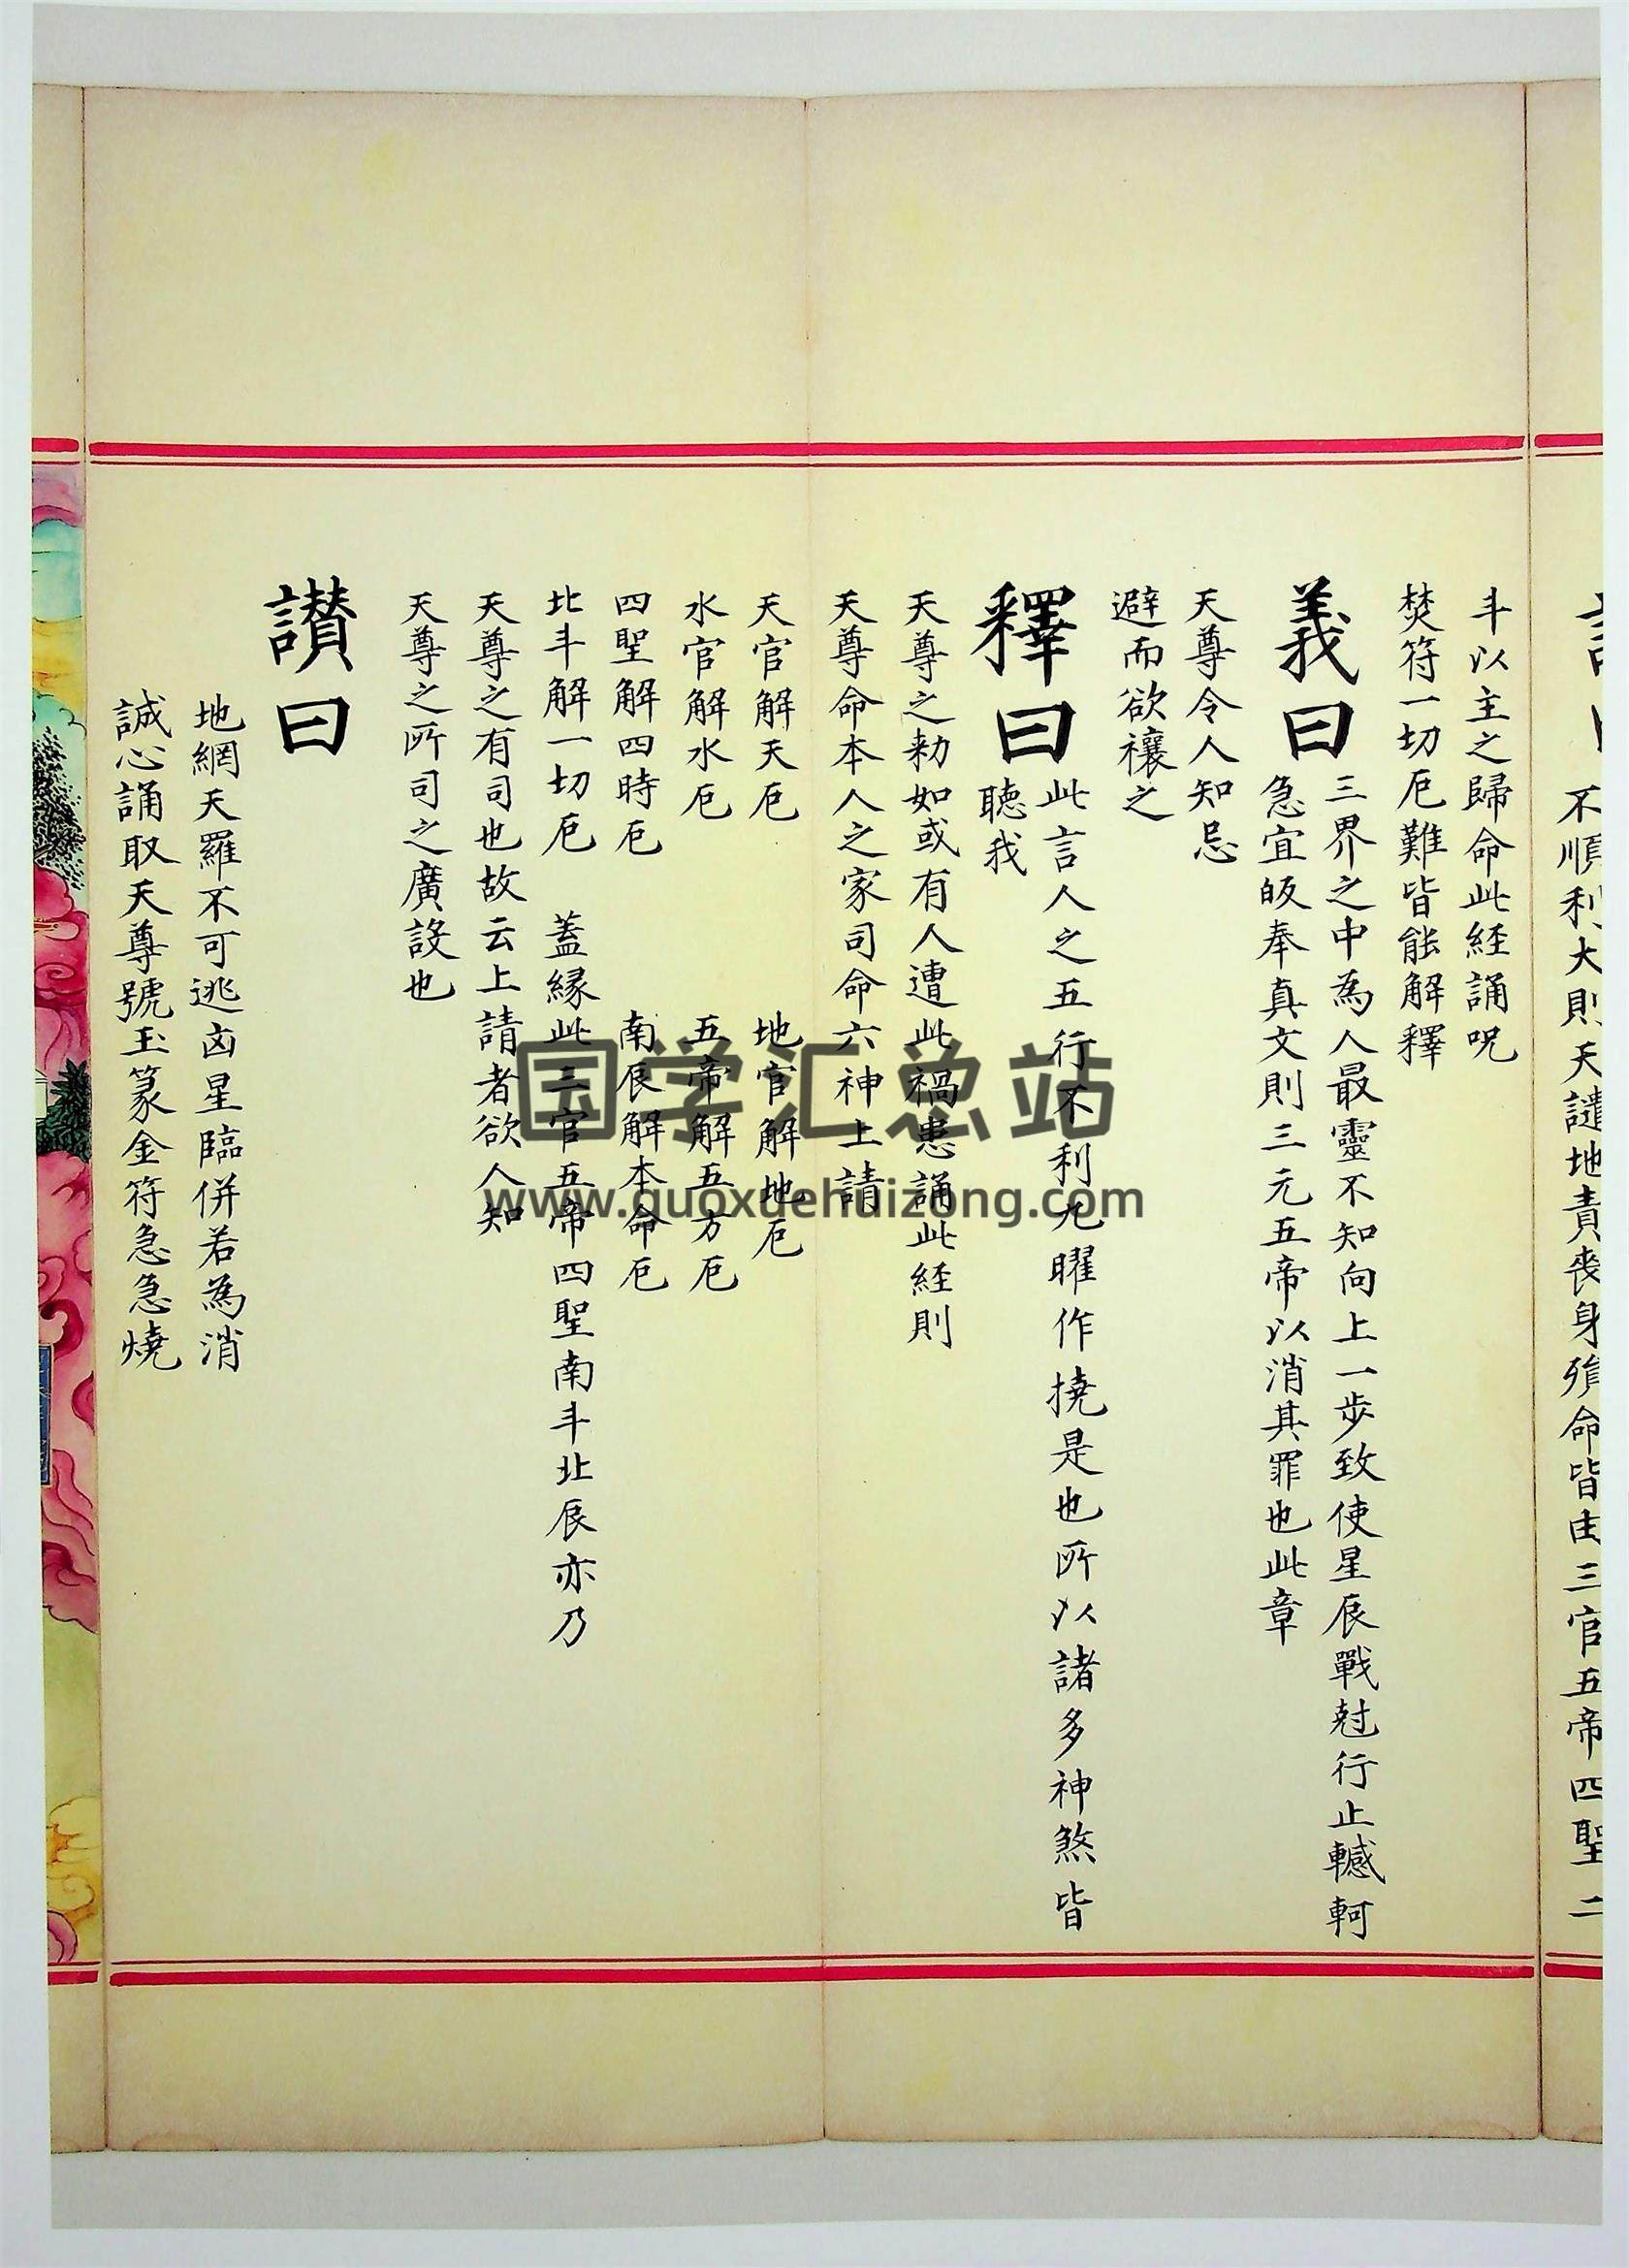 不順利大則天譴地責喪身殞命皆由三官五帝四聖二
斗以主之歸命此経誦呪
焚符一切厄難皆能解釋
義曰
三界之中為人最靈不知向上一步致使星辰戰尅行止轗軻
急宜皈奉真文則三元五帝以消其罪也此章
天尊令人知忌
避而欲禳之
釋曰
此言人之五行不利九曜作撓是也所以諸多神煞皆
聽我
天尊之勑如或有人遭此禍患誦此経則
天尊命本人之家司命六神上請
天官解天厄 地官解地厄
水官解水厄 五帝解五方厄
四聖解四時厄 南辰解本命厄
北斗解一切厄 蓋縁此三官五帝四聖南斗北辰亦乃
天尊之有司也故云上請者欲人知
天尊之所司之廣設也
讃曰
地網天羅不可逃凶星臨併若為消
誠心誦取天尊號玉篆金符急急燒
国学汇总站
www.guoxuehuizong.com